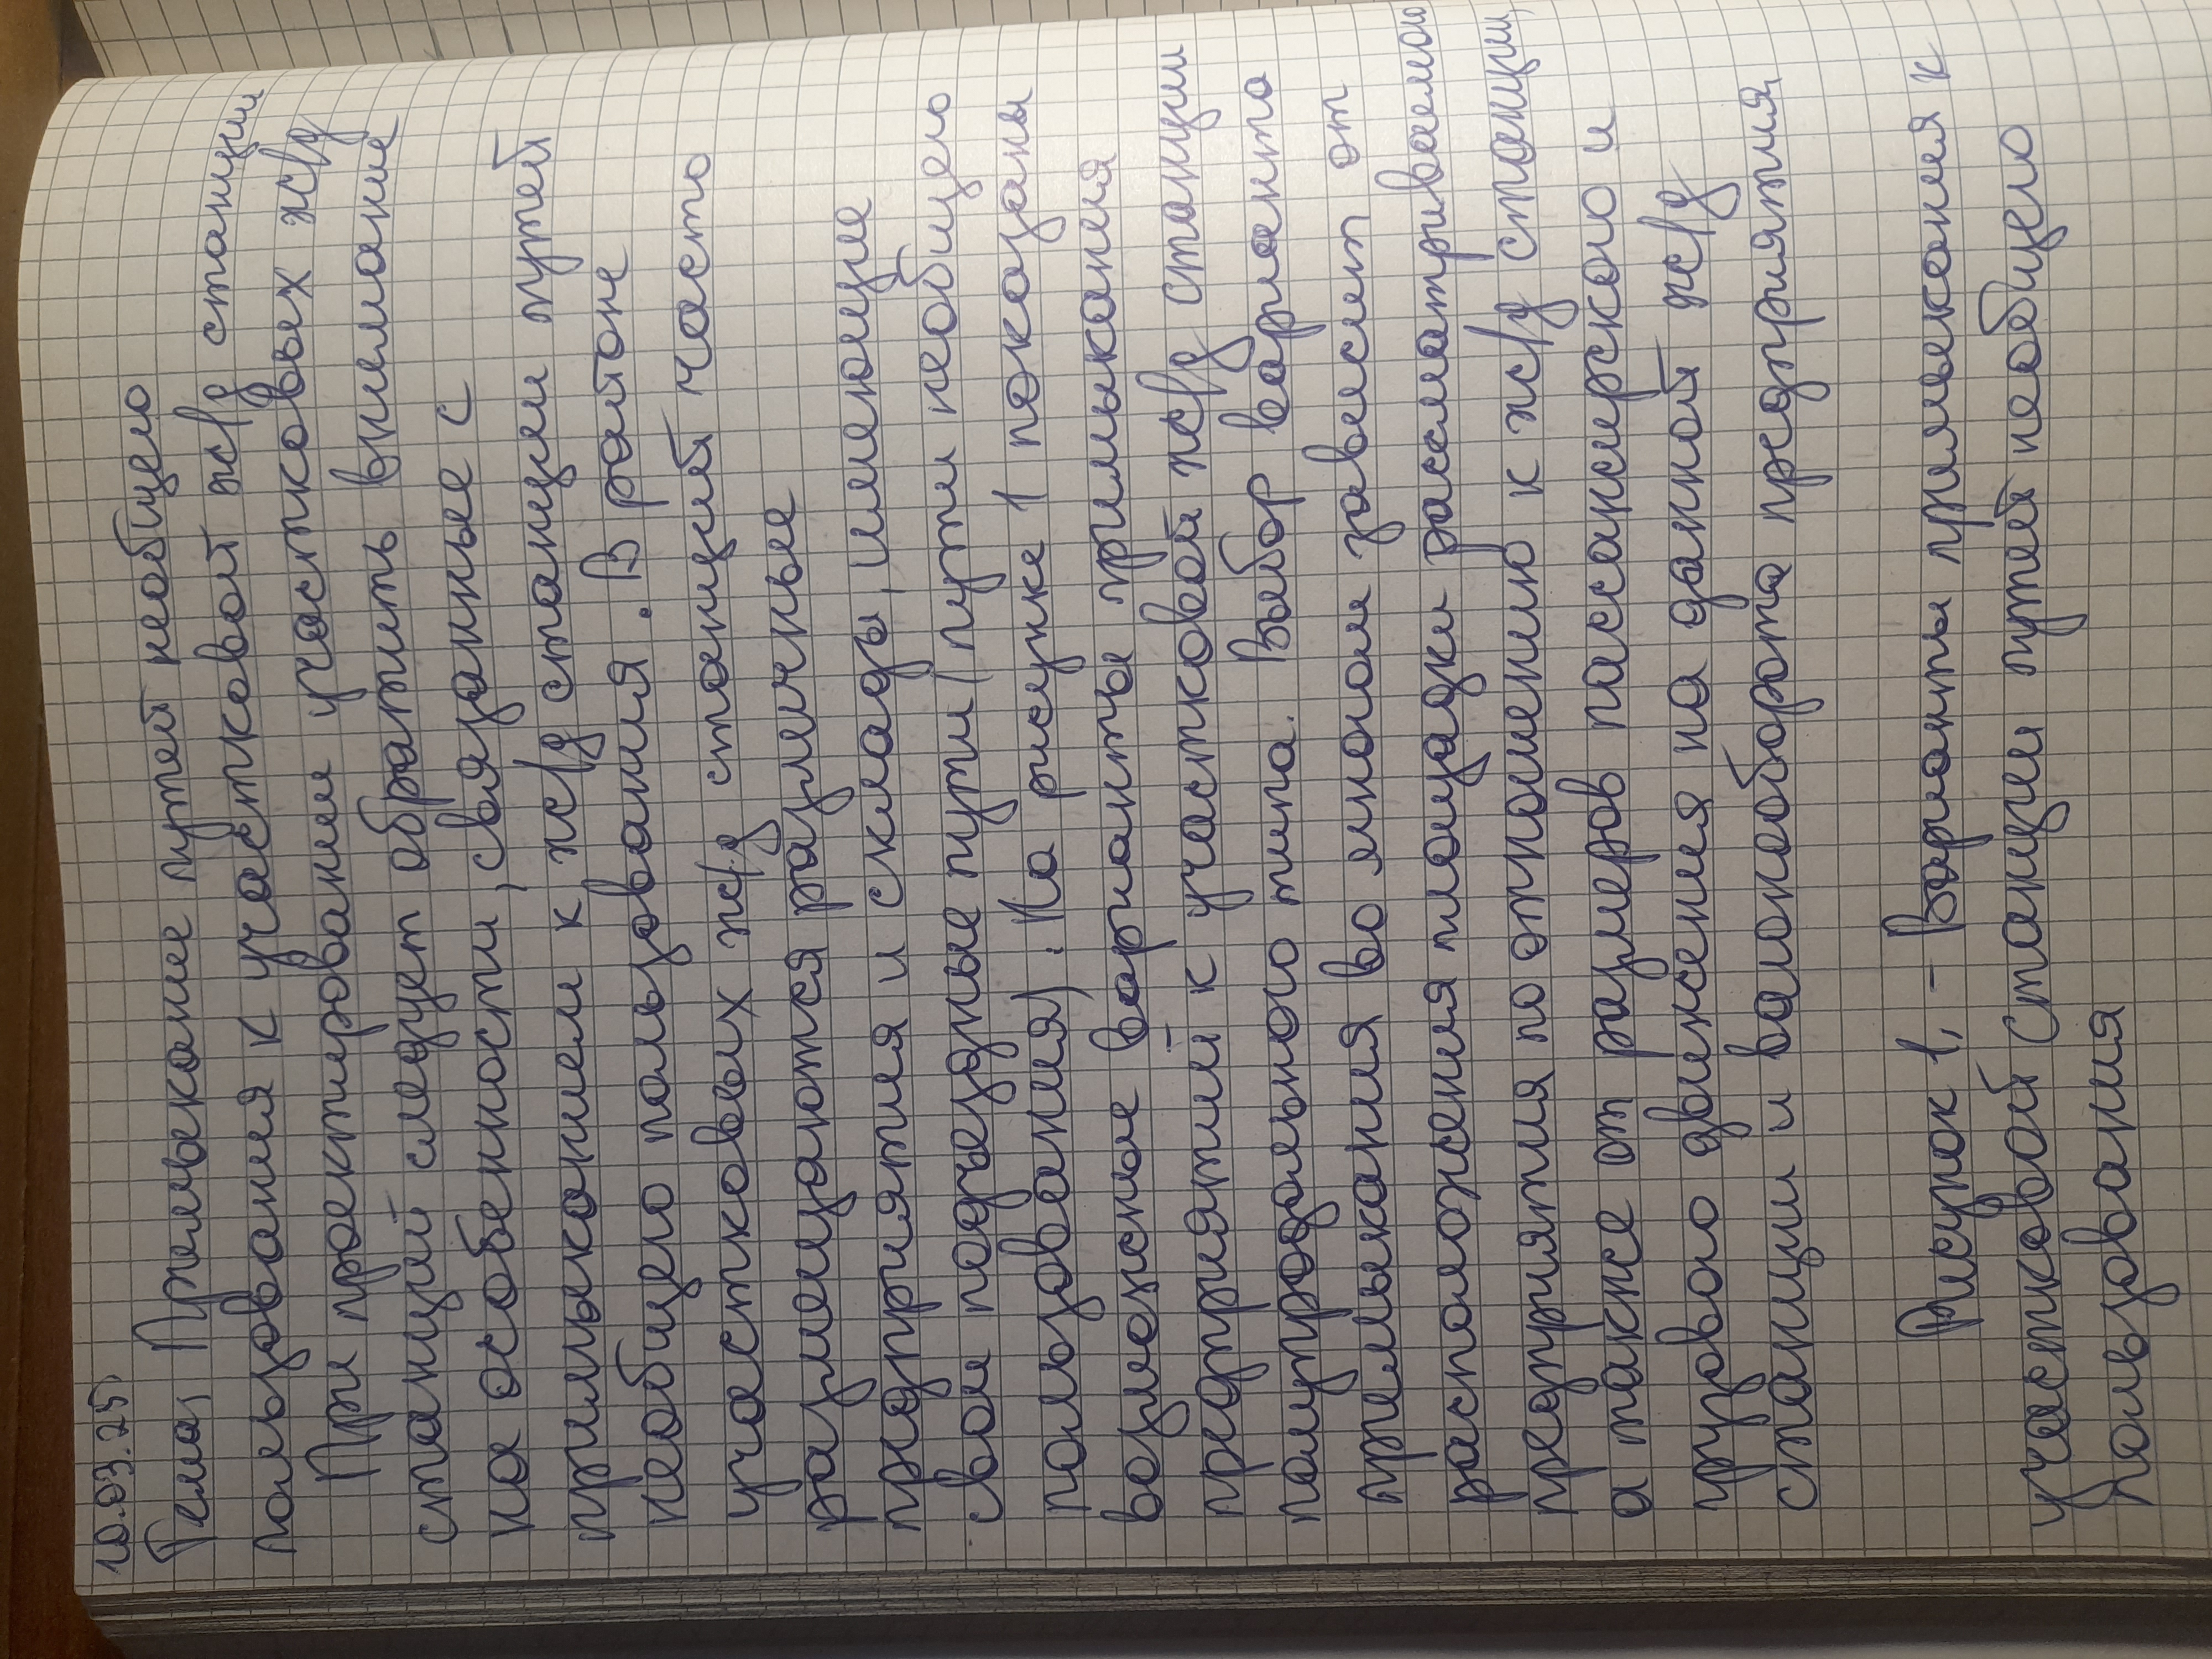 10.03.25
Тема: Примыкание путей необщего
пользования к участковой ж/д станции
При проектировании участковых ж/д
станций следует обратить внимание
на особенности, связанные с
примыканием к ж/д станции путей
необщего пользования. В районе
участковых ж/д станций часто
размещаются различные
предприятия и склады, имеющие
свои подъездные пути (пути необщего
пользования). На рисунке 1 показаны
возможные варианты примыкания
предприятий к участковой ж/д станции
полупродольного типа. Выбор варианта
примыкания во многом зависит от
расположения площадки рассматриваемого
предприятия по отношению к ж/д станции,
а также от размеров пассажирского и
грузового движения на данной ж/д
станции и вагонооборота предприятия
Рисунок 1, - Варианты примыкания к
участковой станции путей необщего
пользования